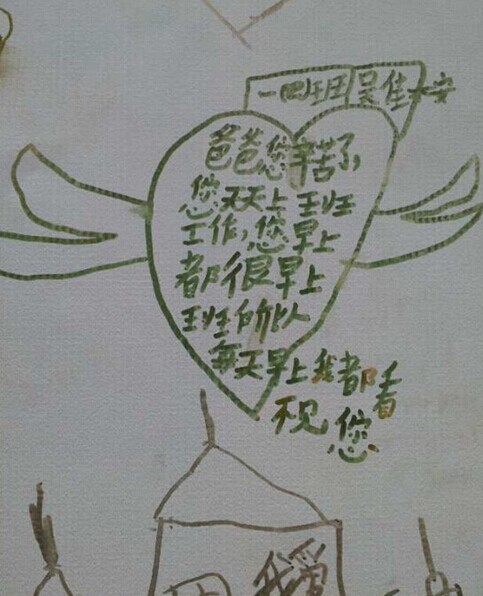 一四班吴佳安
爸爸您辛苦了,
您天天上班
工作,您早上
都很早上
班的所以
每天早上我都看
不见您
我爱